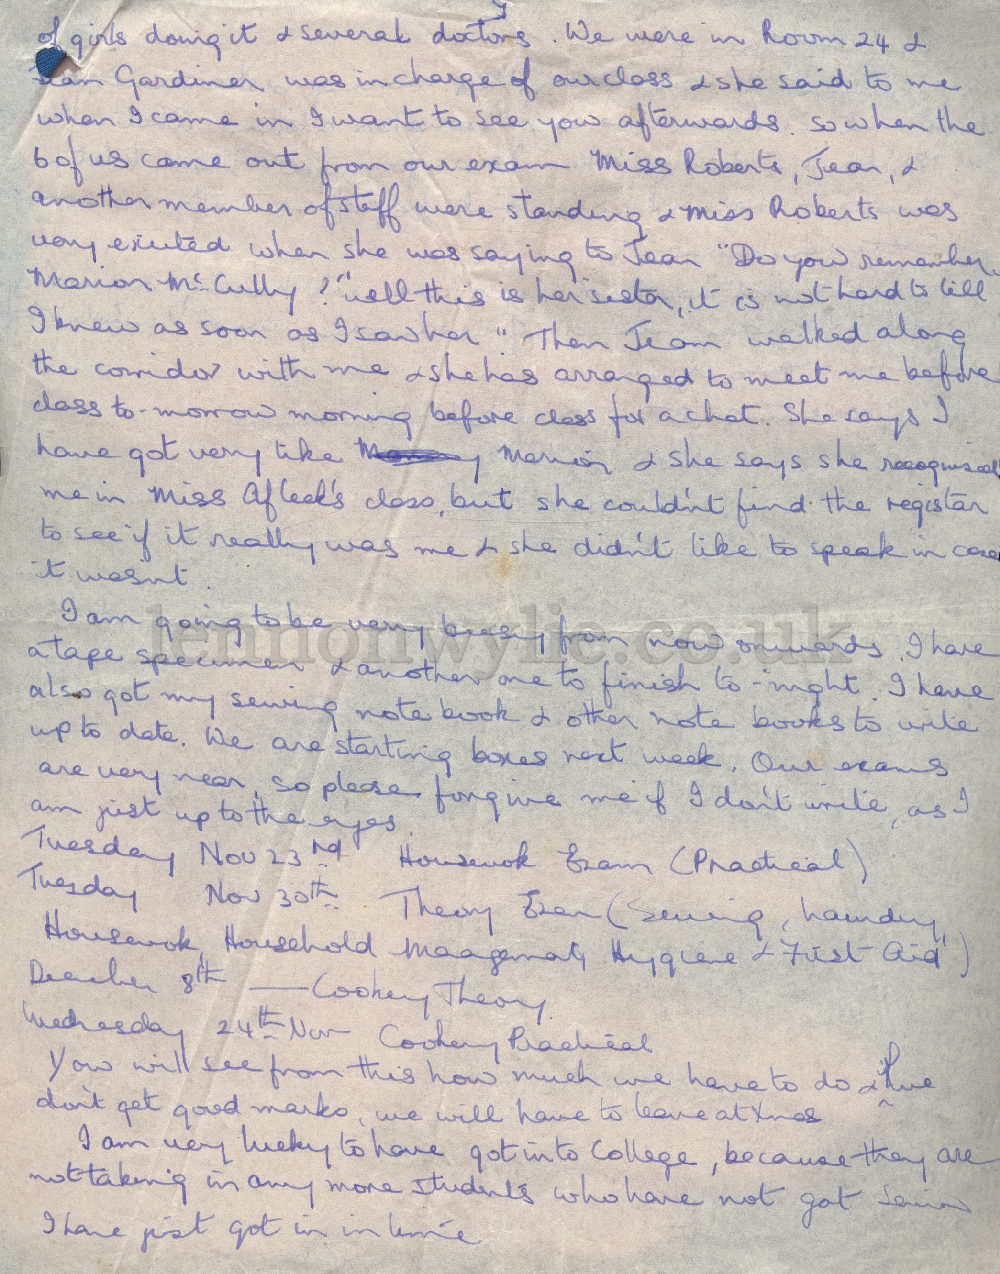 of girls doing it & several doctors. We were in Room 24 &
Jean Gardiner was in charge of our class & she said to me
when I came in I want to see you afterwards. so when the
6 of us came out from our exam Miss Roberts, Jean, &
another member of staff were standing & Miss Roberts was
very excited when she was saying to Jean "Do you remember
Marion McCully?" well this is her sister, it is not hard to tell
I knew as soon as I saw her". Then Jean walked along
the corridor with me & she has arranged to meet me before
class to-morrow morning before class for a chat. She says I
have got very like Marion & she says she recognised
me in Miss Afleck's class, but she couldn't find the registar
to see if it really was me & she didn't like to speak in case
it wasn't.
I am going to be very busy from now onwards. I have
a tape specimen & another one to finish to-night. I have
also got my sewing note book & other note books to write
up to date. We are starting boxes next week. Our exams
are very near, so please forgive me if I don't write, as I
am just up to the eyes.
Tuesday Nov 23rd Housework Exam (Practical)
Tuesday Nov 30th Theory Exam (Sewing, Laundry,
Housework, Household Management, Hygiene & First Aid)
December 8th — Cookery Theory
Wednesday 24th Nov Cookery Practical
You will see from this how much we have to do & if we
don't get good marks, we will have to leave at Xmas
I am very lucky to have got into College, because they are
not taking in any more students who have not got Senior
I have just got in in time
lennonwylie.co.uk